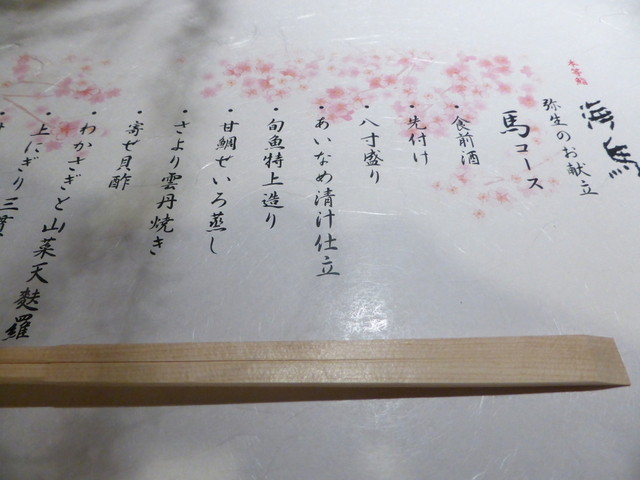 海馬
弥生のお献立
馬コース
・食前酒
・先付け
・八寸盛り
・あいなめ清汁仕立
・旬魚特上造り
・甘鯛せいろ蒸し
・さより雲丹焼き
・寄せ貝酢
・わかさぎと山菜天麩羅
・上にぎり三貫